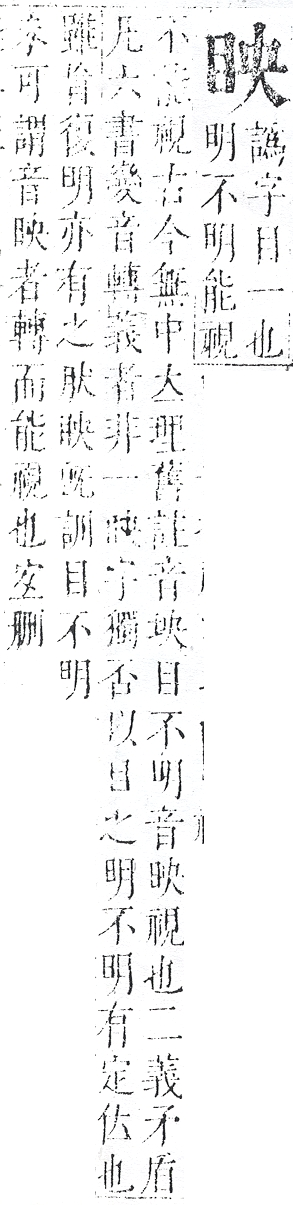 眏
譌字目一也
明不明能視
不能視古今無中立理舊註音坱目不明音映視也二義矛盾
凡六書變音轉義者非一眏字獨否以目之明不明有定体也
雖盲復明亦有之肰眏旣訓目不明
未可謂音映者轉而能視也宜刪